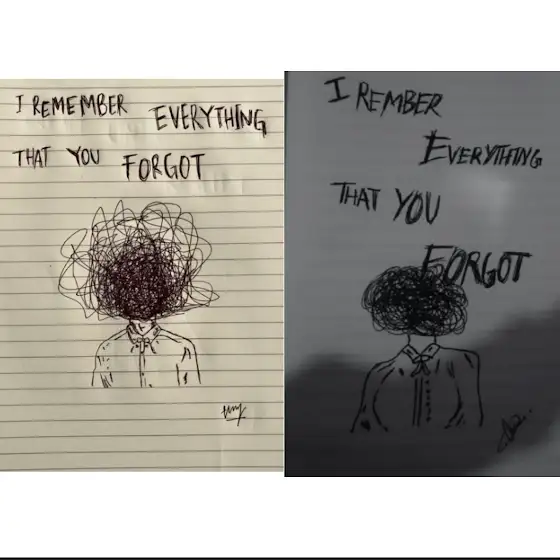 I REMEMBER EVERYTHING
THAT YOU FORGOT
I REMBER
EVERYTHING
THAT YOU
FORGOT